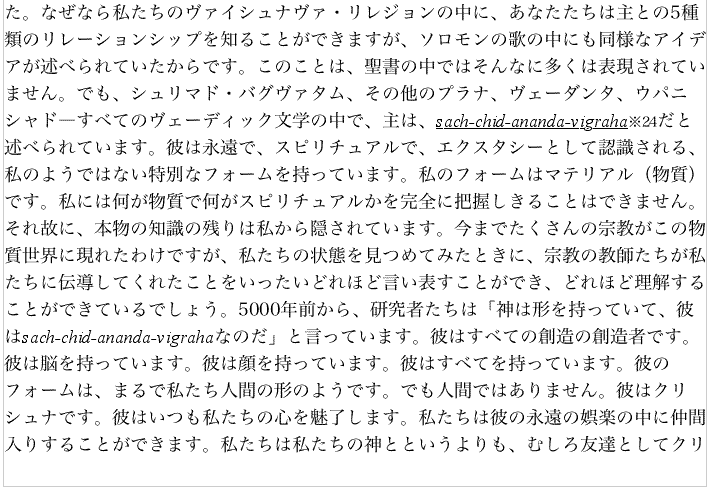 た。なぜなら私たちのヴァイシュナヴァ・リレジョンの中に、あなたたちは主との5種
類のリレーションシップを知ることができますが、ソロモンの歌の中にも同様なアイデ
アが述べられていたからです。このことは、聖書の中ではそんなに多くは表現されてい
ません。でも、シュリマド・バグヴァタム、その他のプラナ、ヴェーダンタ、ウパニ
シャド―すべてのヴェーディック文学の中で、主は、sach-chid-ananda-vigraha※24だと
述べられています。彼は永遠で、スピリチュアルで、エクスタシーとして認識される、
私のようではない特別なフォームを持っています。私のフォームはマテリアル（物質）
です。私には何が物質で何がスピリチュアルかを完全に把握しきることはできません。
それ故に、本物の知識の残りは私から隠されています。今までたくさんの宗教がこの物
質世界に現れたわけですが、私たちの状態を見つめてみたときに、宗教の教師たちが私
たちに伝導してくれたことをいったいどれほど言い表すことができ、どれほど理解する
ことができているでしょう。5000年前から、研究者たちは「神は形を持っていて、彼
はsach-chid-ananda-vigrahaなのだ」と言っています。彼はすべての創造の創造者です。
彼は脳を持っています。彼は顔を持っています。彼はすべてを持っています。彼の
フォームは、まるで私たち人間の形のようです。でも人間ではありません。彼はクリ
シュナです。彼はいつも私たちの心を魅了します。私たちは彼の永遠の娯楽の中に仲間
入りすることができます。私たちは私たちの神とというよりも、むしろ友達としてクリ